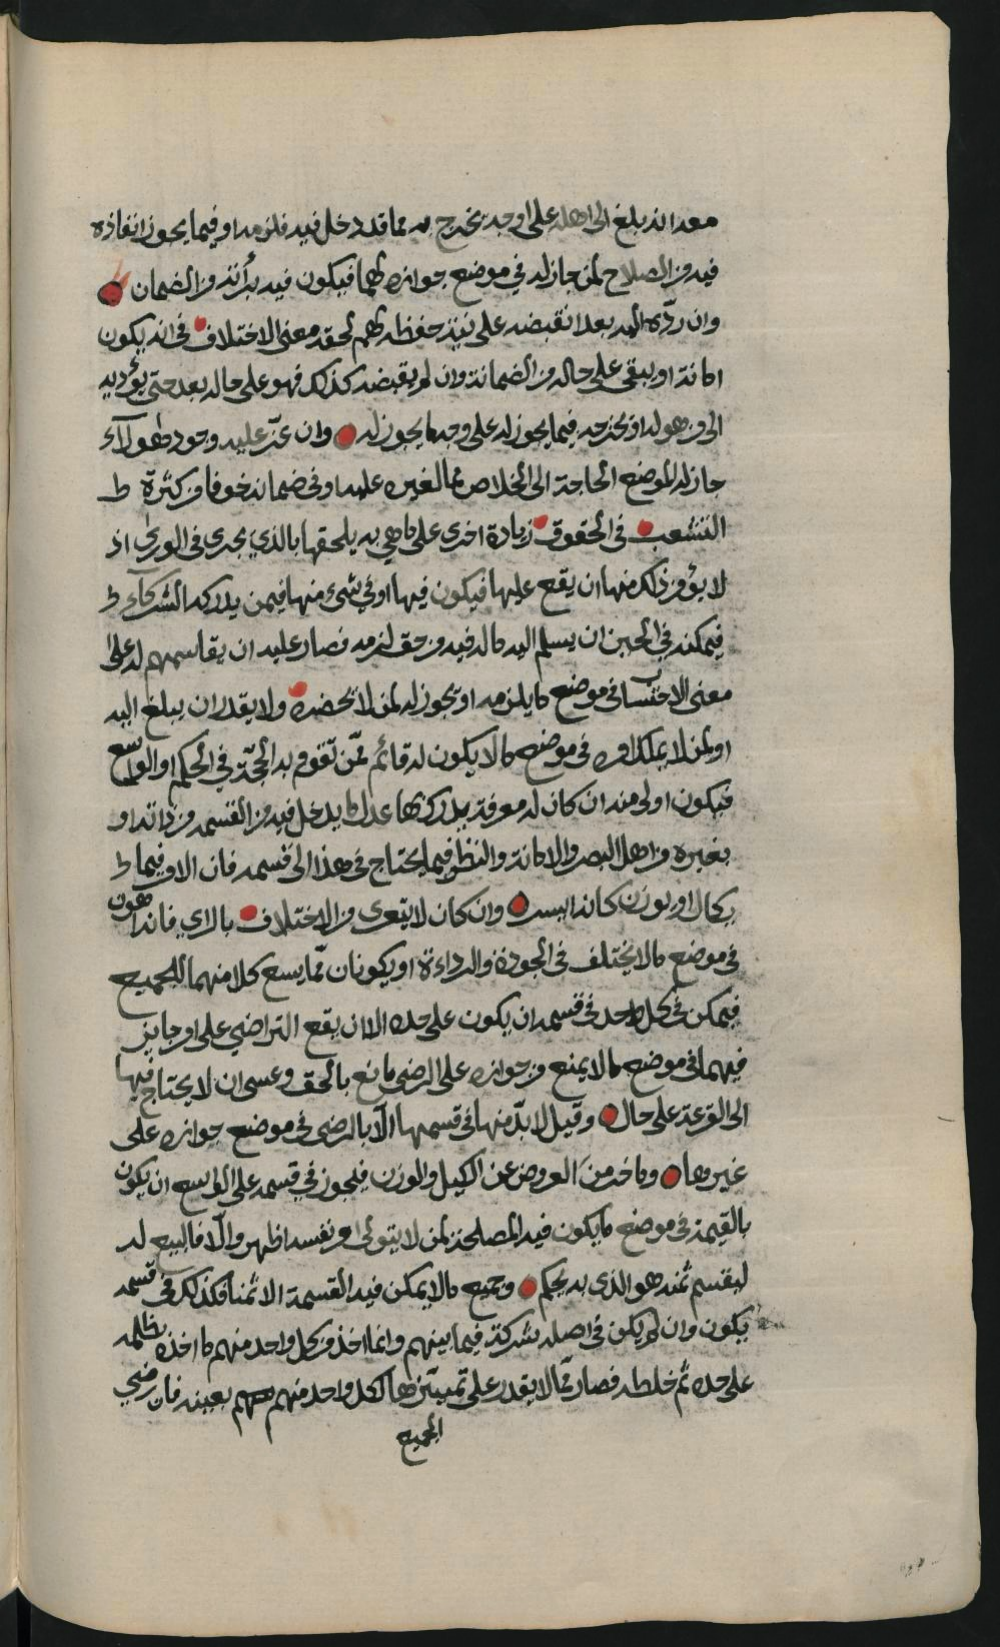 معه انه بلغ الى اهله على وجه يخرج به مما قد دخل فيه فلزمه او فيما يجوز انفاذه
فيه من الصلاح لمن جاز له في موضع جوازه لهما فيكون فيه برأته من الضمان
وان ردّه اليه بعد ان قبضه على نية حفظه لهم لحقه معنى الاختلاف في انه يكون
امانة او يبقى على حاله من الضمانة وان لم يقبضه كذلك فهو على حاله بعد حتى يؤديه
الى من هو له او يخرجه فيما يجوز له على وجه ما يجوز له وان عزّ عليه وجود هؤلاء
جاز له لموضع الحاجة الى الخلاص مما لغيره عليه او في ضمانه خوفا من كثرة
التشعب في الحقوق زيادة اخرى على ما هي به يلحقها بالذي يجرى في الورى اذ
لا يؤمن ذلك منها ان يقع عليها فيكون فيها او في شيء منها فيمن يدركه الشركاء
فيمكنه في الحين ان يسلم اليه ماله فيه من حق لزمه فصار عليه ان يقاسمهم له على
معنى الاحتساب في موضع ما يلزمه او يجوز له لمن لا يحضره ولا يقدر ان يبلغ اليه
او لمن لا يملك امره في موضع ما لا يكون له قائم ممّن تقوم به الحجّة في الحكم او الواسع
فيكون اولى منه ان كان له معرفة يدرك بها عدل ما يدخل فيه من القسمه من ذاته او
بغيره من اهل البصر والامانة والنظر فيما يحتاج في هذا الى قسمه فان الامر فيما
يكال او يوزن كانه ايسر وان كان لا يتعرى من الاختلاف بالراي فانه اهون
في موضع ما لا يختلف في الجودة والرداءة او يكونان ممّا يسع كلا منهما للجميع
فيمكن في كل واحد في قسمه ان يكون على حده الا ان يقع التراضي على امر جايز
فيهما في موضع ما لا يمنع من جوازه على الرضى مانع بالحق وعسى ان لا يحتاج فيها
الى القرعة على حال وقيل لا بدّ منها في قسمها الّا بالرضى في موضع جوازه على
غيرها وما خرج من العروض عن الكيل والوزن فيجوز في قسمه على الواسع ان يكون
بالقيمة في موضع ما يكون فيه المصلحة لمن لا يتولى امر نفسه اظهر والّا فالبيع له
ليقسم ثمنه هو الذي به يحكم وجميع ما لا يمكن فيه القسمة الا ثمنا فكذلك في قسمه
يكون وان لم يكن في اصله شركة فيما بينهم وانما اخذ من كل واحد منهم ما اخذه بظلمه
على حده ثم خلطه فصار ممّا لا يقدر على تمييزها لكل واحد منهم بعينه فان رضي
الجميع